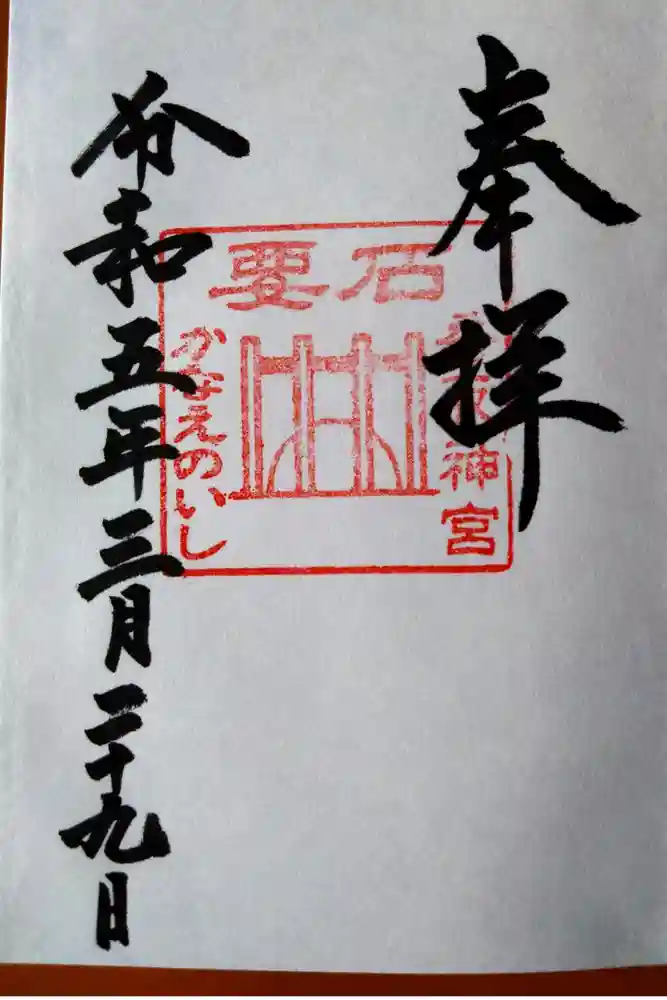 奉拝
要石
神宮
かなえのいし
令和五年三月二十九日